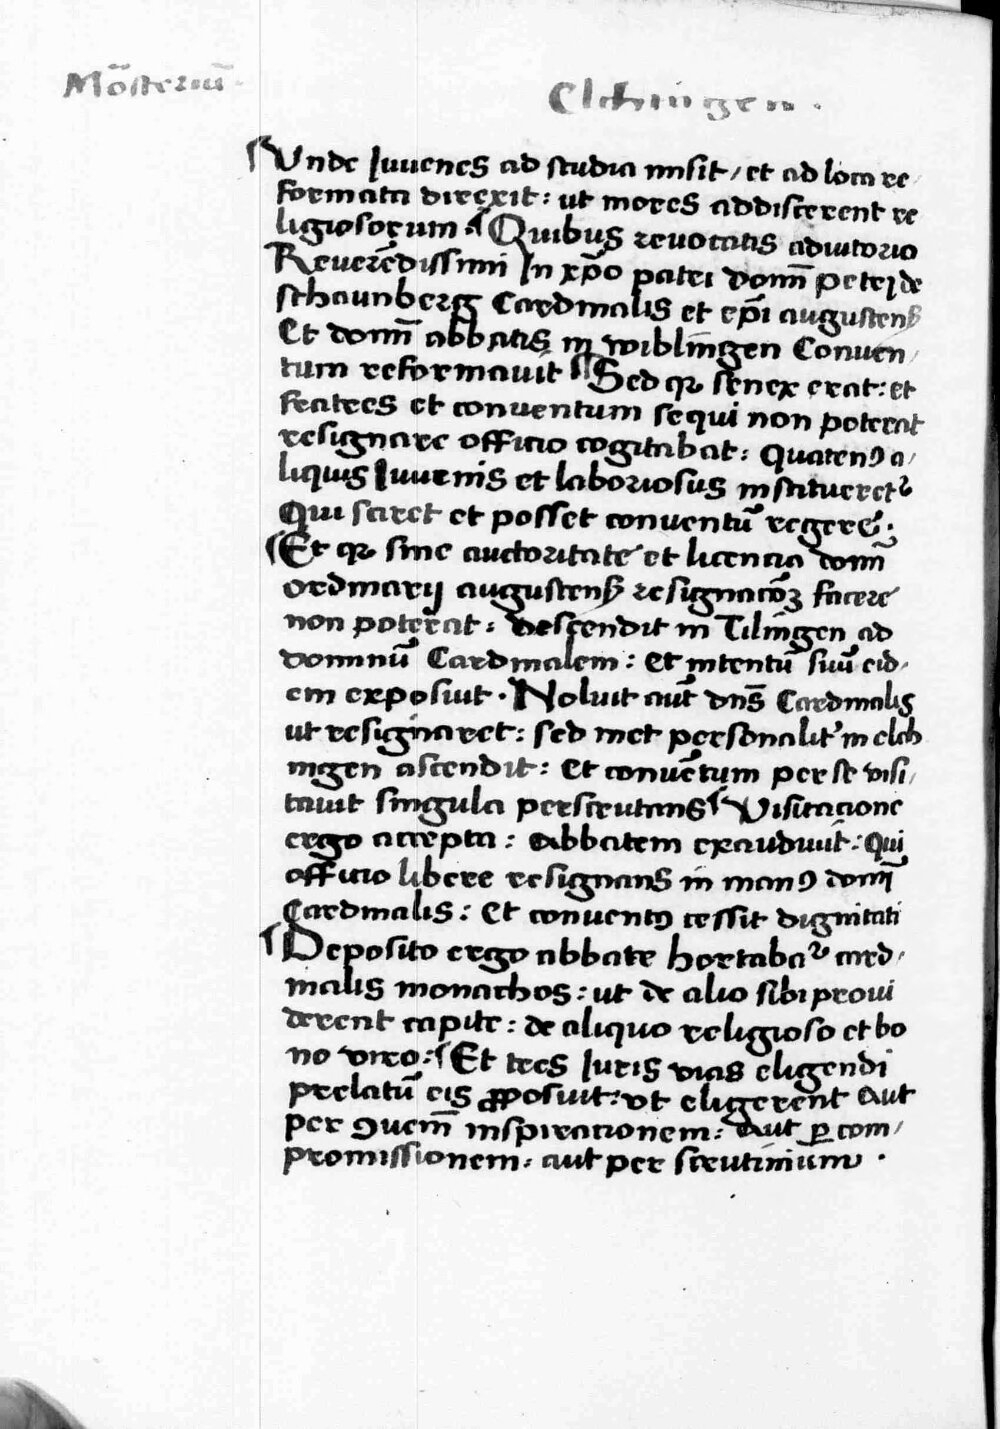 Mo̅steriu̅
Elchingen.
¶ Unde Iuuenes ad studia misit / et ad loca re/
formata direxit: ut mores addiscerent re
ligiosorum. ¶ Quibus reuocatis adiutorio
Reuere̅dissimi In xp̅o patri domi̅ petri de
schaunberg Cardinalis et ep̅i augustens̅
Et domi̅ abbatis in wiblingen Conuen/
tum reformauit ¶ Sed qꝛ senex erat: et
fratres et conuentum sequi non poterat
resignare officio cogitabat: Quatenꝰ a/
liquis Iuuenis et laboriosus institueretᷣ
Qui sciret et posset conuentu̅ regere.
¶ Et qꝛ sine auctoritate et licencia domi̅
ordinarij augustens̅ resignaco̅ꝫ facere
non poterat: descendit in Tilingen ad
dominu̅ Cardinalem: Et intentu̅ suu̅ eid/
em exposuit. Noluit aut̅ dn̅s Cardinalis
ut resignaret: sed met personalit' in elch
ingen ascendit: Et conue̅tum per se visi/
tauit singula perscrutans ¶ Visitacione
ergo accepta: abbatem exaudiuit: Qui
officio libere resignans in manꝰ domi̅
Cardinalis: Et conuentꝰ cessit dignitati
¶ Deposito ergo abbate hortabaᷣ card/
inalis monachos: ut de alio sibi proui
derent capite: de aliquo religioso et bo
no viro: ¶ Et tres Iuris vias eligendi
prelatu̅ eis ꝓposuit: vt eligerent Aut
per ꝯuem̅ inspiracionem: Aut ꝑ com/
promissionem: aut per scrutinium.